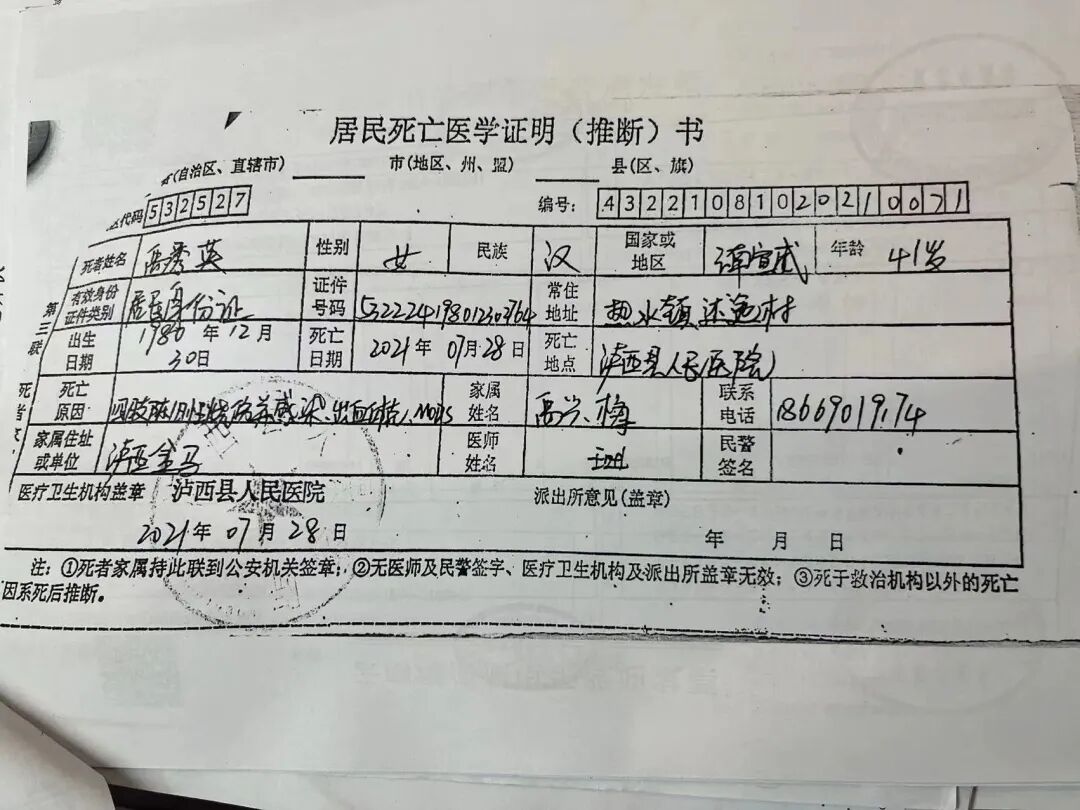 居民死亡医学证明（推断）书
省(自治区、直辖市) 市(地区、州、盟) 县(区、旗)
代码 532527 编号: 43221081020210071
第三联
死者姓名 岳秀英 性别 女 民族 汉 国家或地区 年龄 41岁
有效身份证件类别 居民身份证 证件号码 常住地址 热水镇
出生日期 1980年12月30日 死亡日期 2021年07月28日 死亡地点 泸西县人民医院
死亡原因 感染、MODS 家属姓名 联系电话
家属住址或单位 泸西金马 医师姓名 民警签名
医疗卫生机构盖章 泸西县人民医院 派出所意见(盖章)
2021年07月28日 年 月 日
注: ①死者家属持此联到公安机关签章; ②无医师及民警签字、医疗卫生机构及派出所盖章无效; ③死于救治机构以外的死亡
因系死后推断。